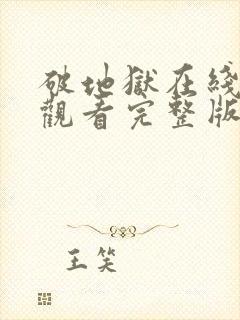 破地獄在綫
觀看完整版
王笑